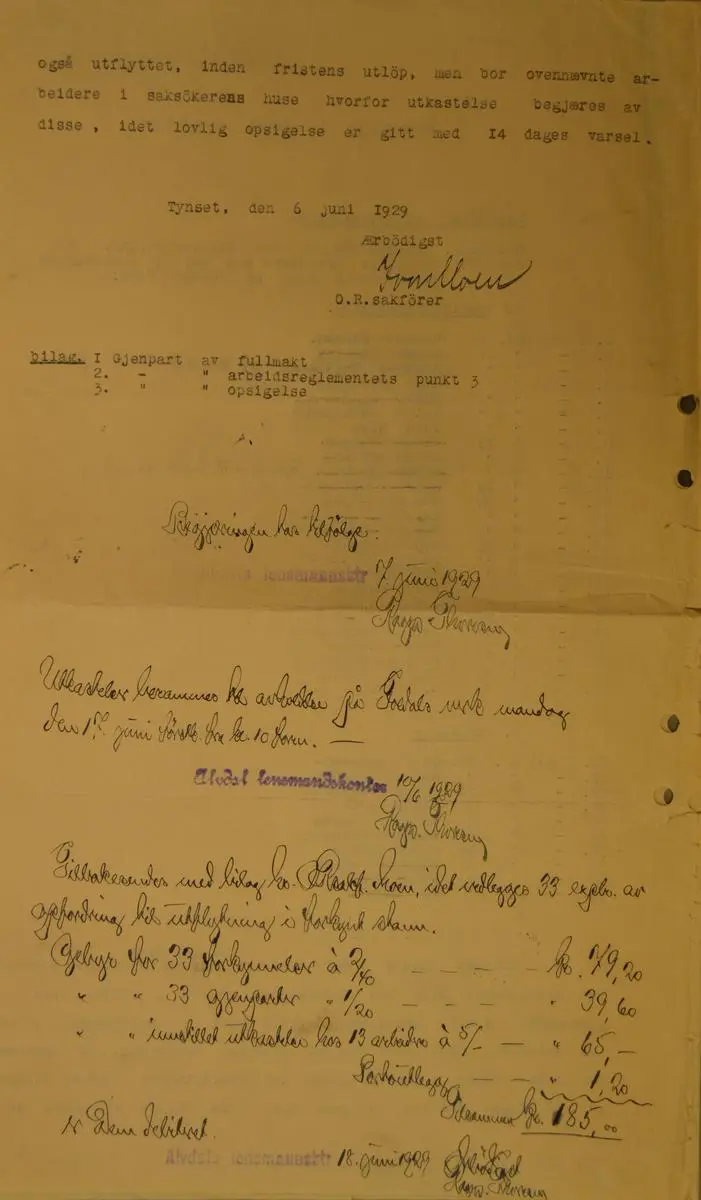 også utflyttet, inden fristens utlöp, men bor ovennævnte ar-
beidere i saksökerens huse hvorfor utkastelse begjæres av
disse, idet lovlig opsigelse er gitt med I4 dages varsel.
Tynset, den 6 juni I929
Ærbödigst
O.R.sakförer
bilag. I Gjenpart av fullmakt
2. - " arbeidsreglementets punkt 3
3. " " opsigelse
Begjæringen has tilfølge.
lensmannsktr 7 juni 1929
Utkastelse berammes til avholdelse på Foldals verk mandag
den 17. juni førstk. fra kl. 10 form. —
Alvdal lensmandskontor 10/6 1929
Tilbakesendes med bilag hr. Moen, idet vedlegges 33 expl. av
opfordring til utflytning i forkynt stann.
Gebyr for 33 forkynnelser à 2/40 — — — kr. 79,20
" " 33 gjenparter " 1/20 — — — " 39,60
" " innstillet utkastelse hos 13 arbeidere à 5/- — " 65,-
Portoutlegg — — " 1,20
Tilsammen kr. 185,00
er Dem debitert.
Alvdal lensmannsktr 18. juni 1929